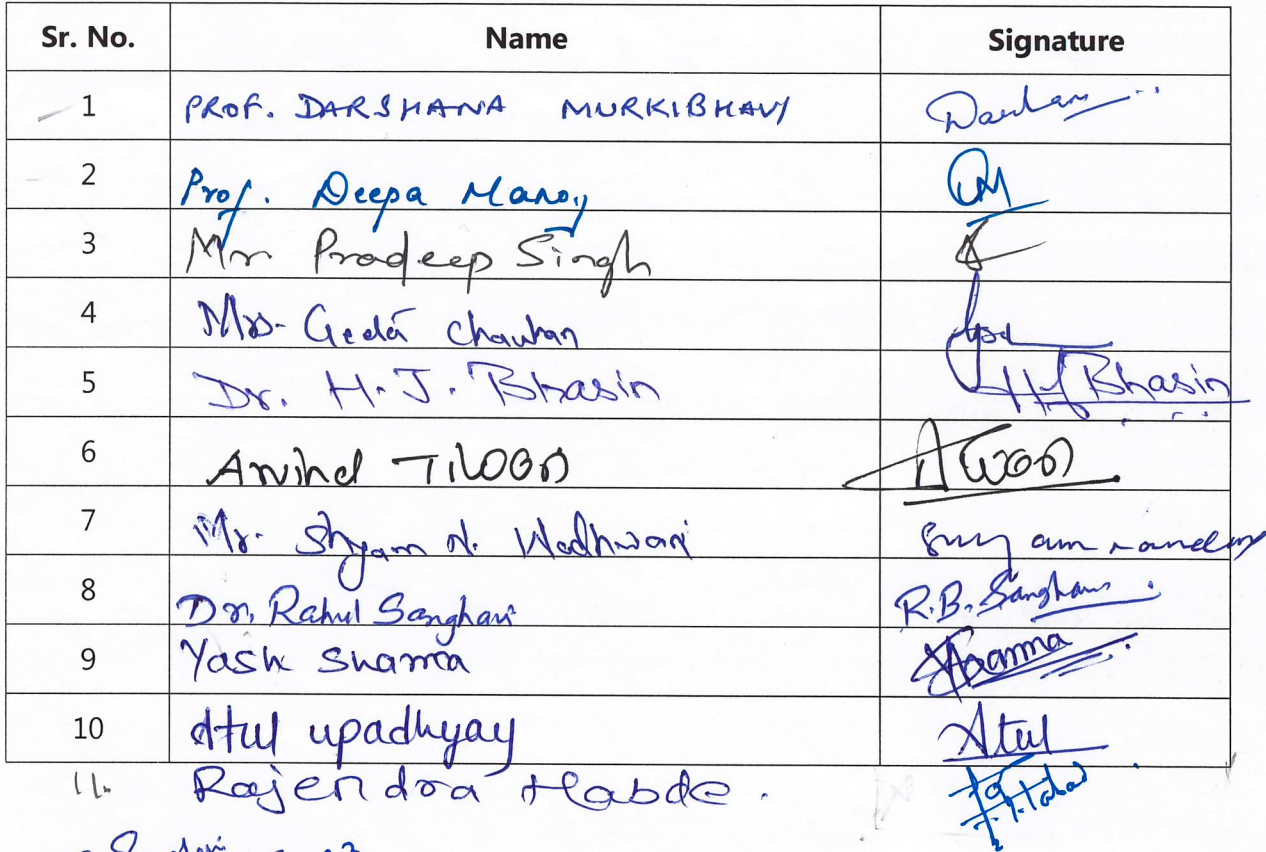 Sr. No. Name Signature
1 PROF. DARSHANA MURKIBHAVI
2 Prof. Deepa Manoj
3 Mr Pradeep Singh
4 Mrs- Geeta Chauhan
5 Dr. H. J. Bhasin HJBhasin
6 Arvind
7 Mr. Shyam N. Wadhwani
8 Dr. Rahul Sanghavi R.B. Sanghavi
9 Yash Sharma Sharma
10 Atul upadhyay Atul
11. Rajendra Habde.